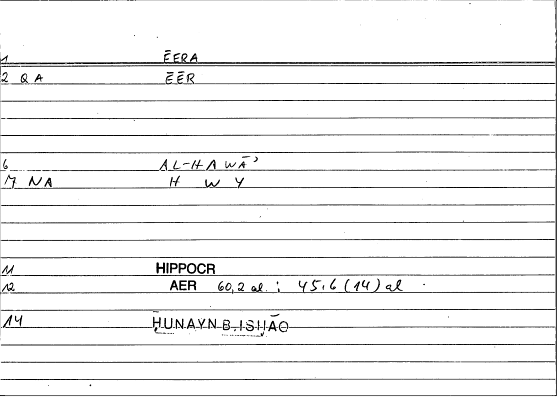 1 ĒERA
2 QA ĒĒR
6 AL-HAWĀʾ
7 NA H W Y
11 HIPPOCR
12 AER 60,2 al. : 45,6 (14) al
14 ḤUNAYN B. ISḤĀQ